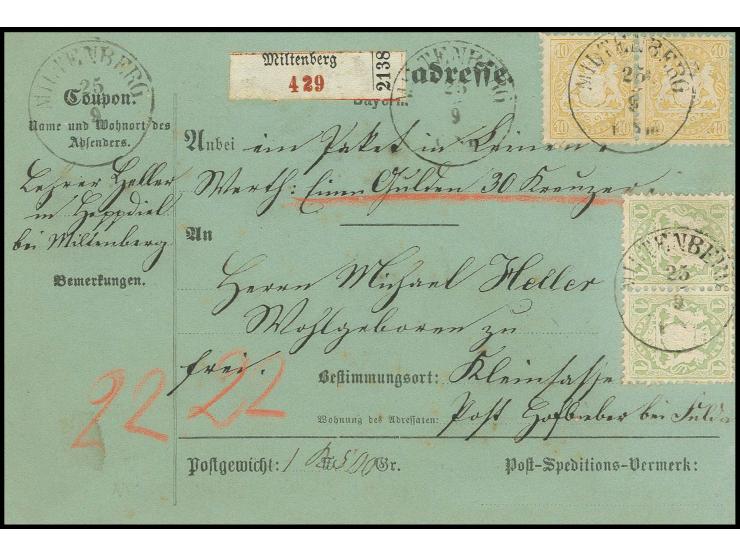 MILTENBERG
25
9
Coupon.
Name und Wohnort des
Absenders.
Lehrer Heller
in Heppdiel
bei Miltenberg
Bemerkungen.
22
Miltenberg
429
2138
adresse
Bayern
MILTENBERG
25
9
10
10
MILTENBERG
25
9
Anbei ein Paket in Leinen.
Werth: Einen Gulden 30 Kreuzer.
An
Herrn Michael Heller
Wohlgeboren zu
frei.
22
Bestimmungsort: Kleinsassen
Wohnung des Adressaten: Post Hofbieber bei Fulda
Postgewicht: 1 500 Gr.
Post-Speditions-Vermerk:
1
1
MILTENBERG
25
9
1
1